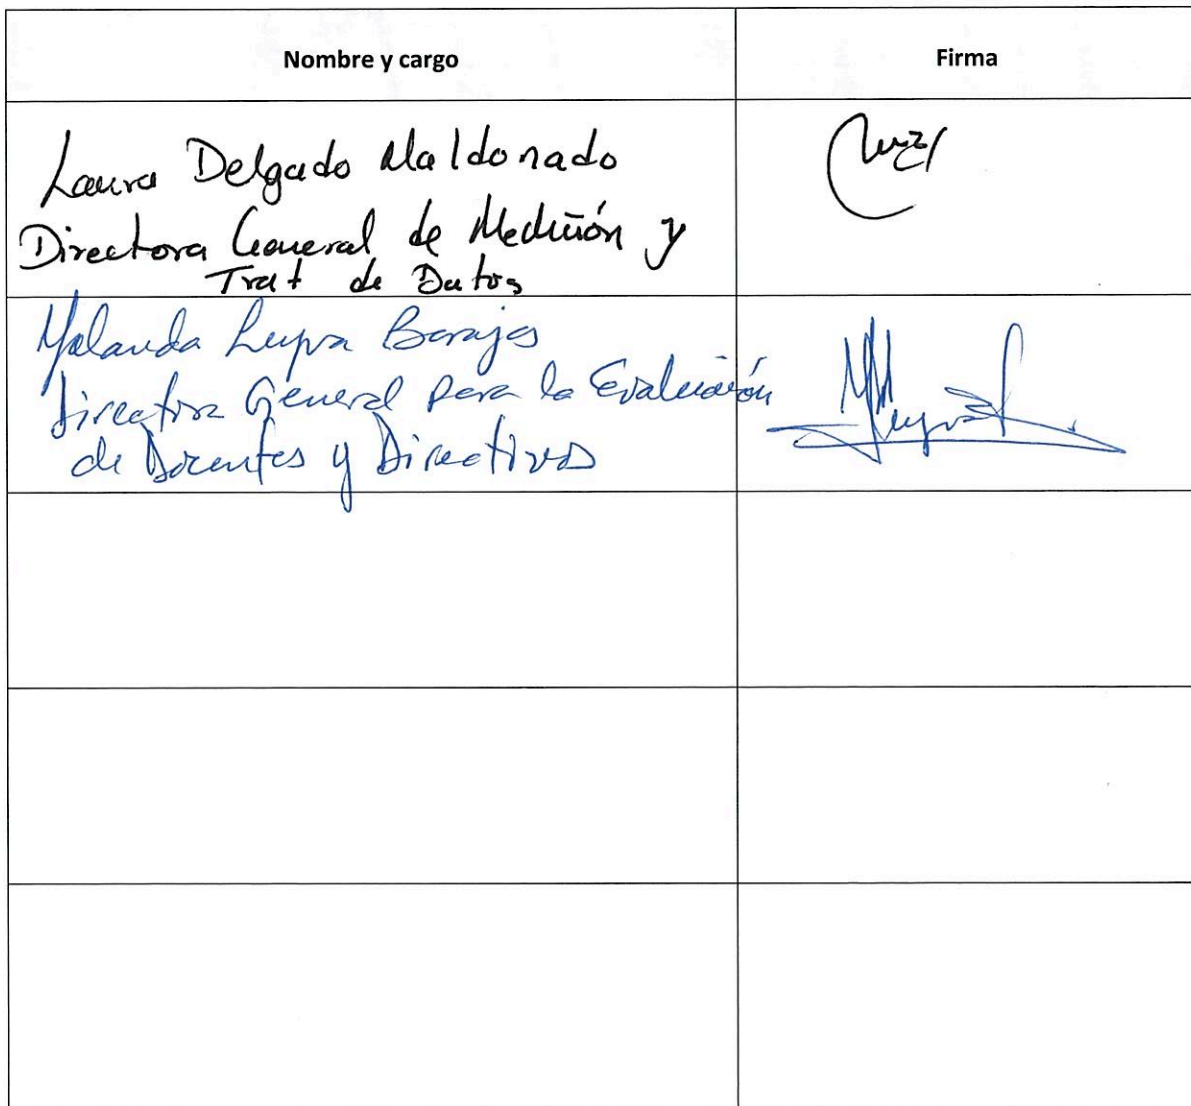 Nombre y cargo
Firma
Laura Delgado Maldonado
Directora General de Medición y
Trat de Datos
Yolanda Leyva Barajas
Directora General para la Evaluación
de Docentes y Directivos